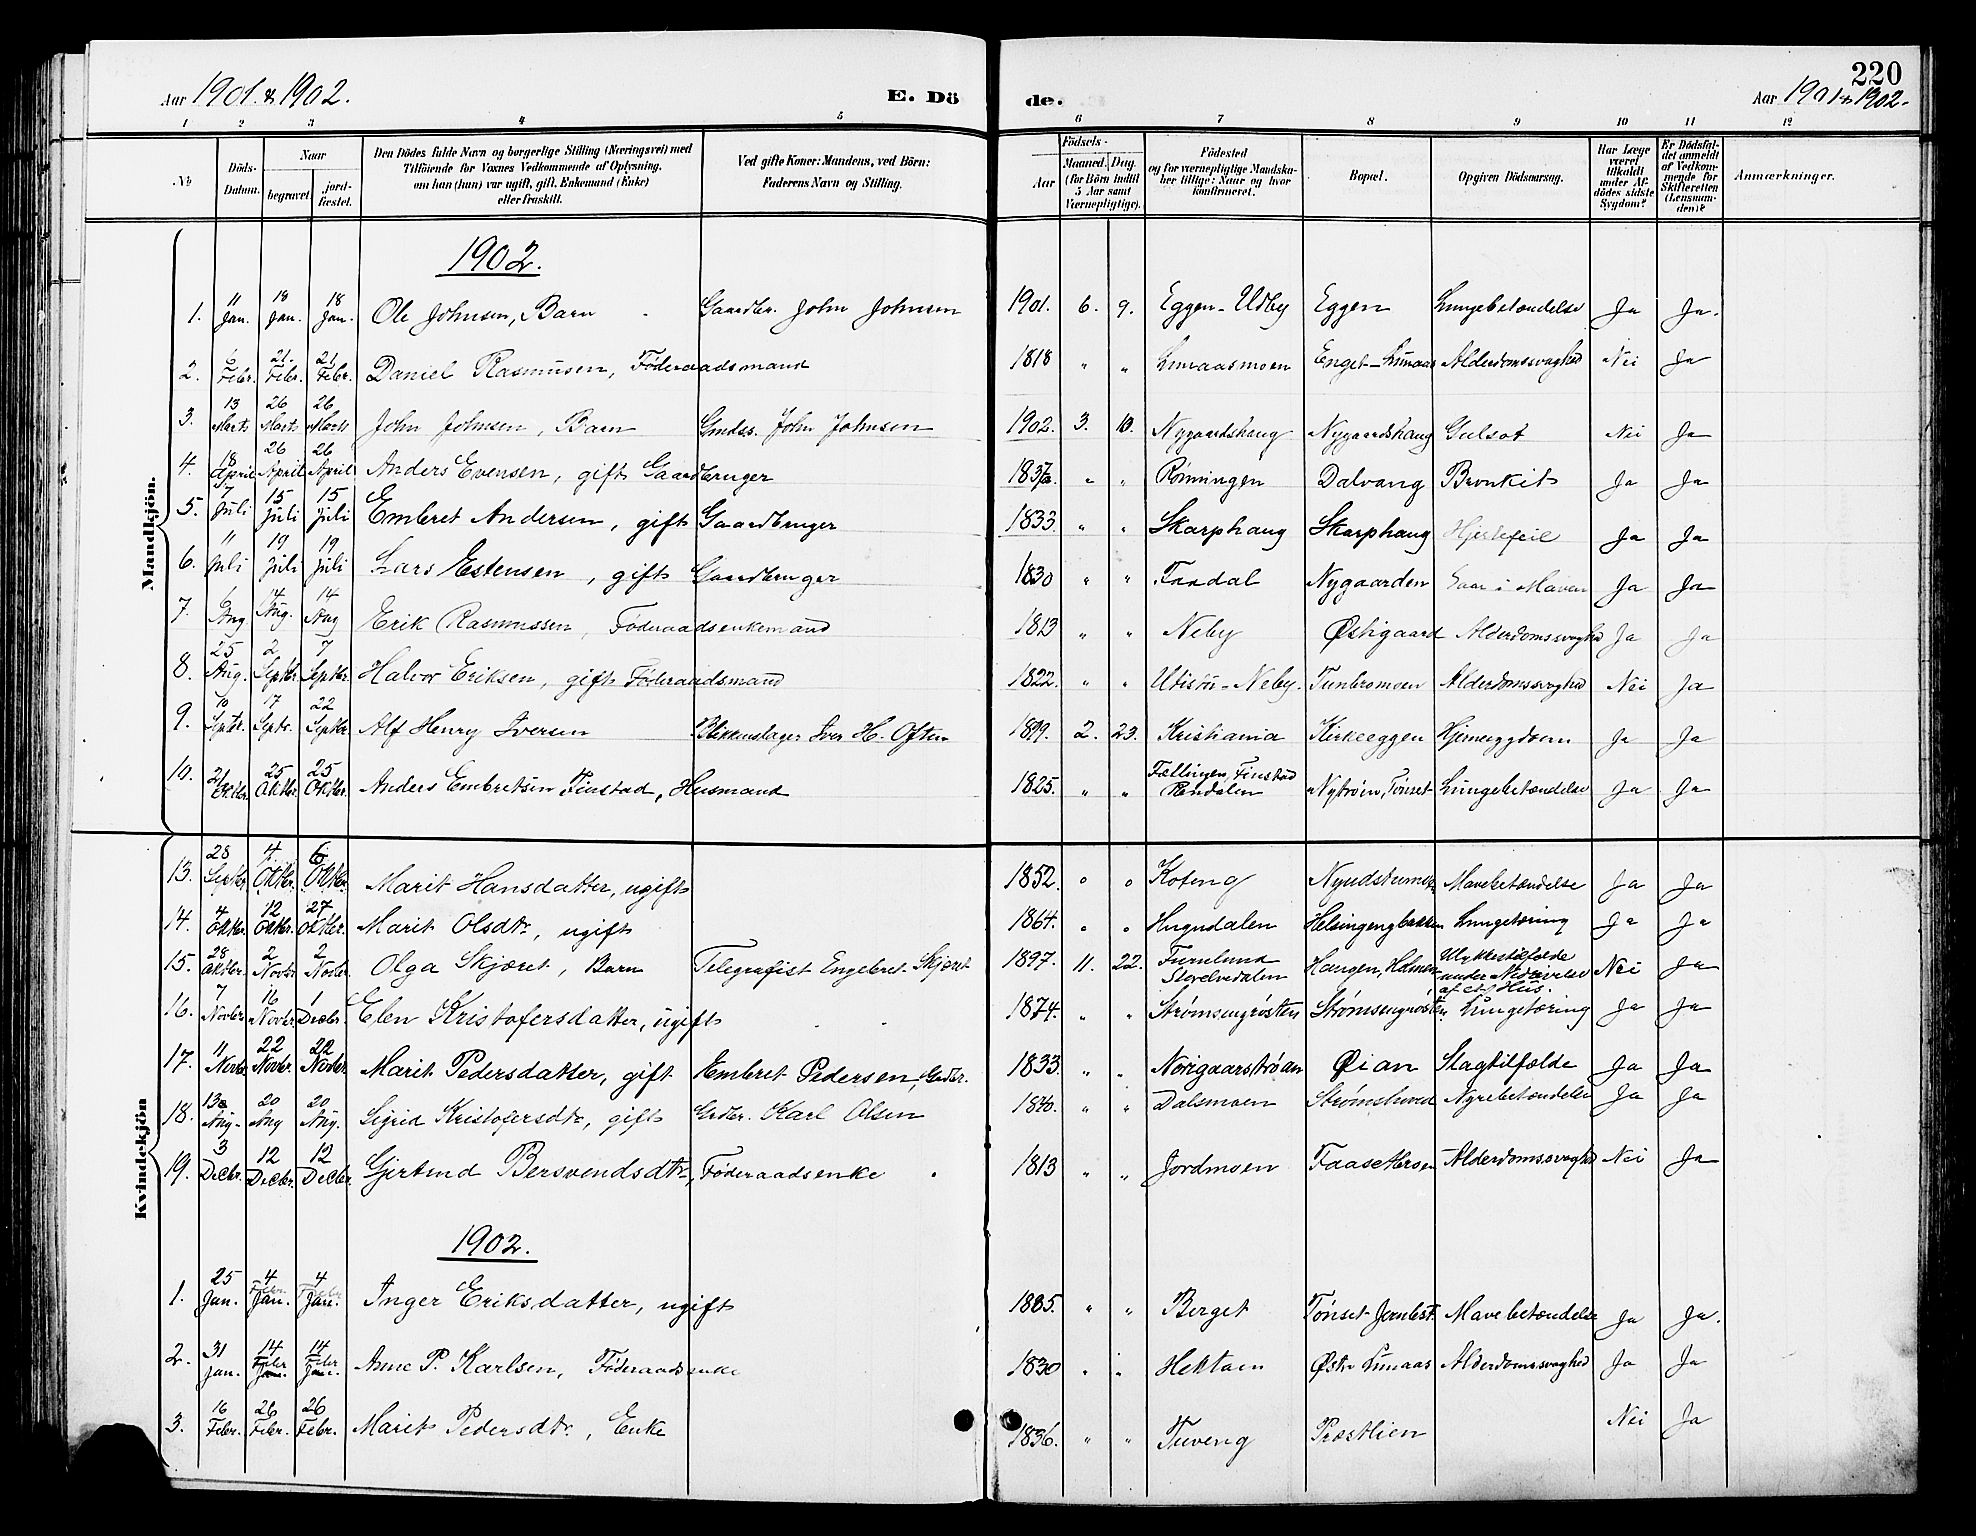 220
Aar 1901 & 1902. E. Dö de. Aar 1901 & 1902.
1 2 3 4 5 6 7 8 9 10 11 12
No Døds-Datum. Naar begravet. jord-fæstet. Den Dødes fulde Navn og borgerlige Stilling (Næringsvei) med Tilføiende for Voxnes Vedkommende af Oplysning, om han (hun) var ugift, gift, Enkemand (Enke) eller fraskilt. Ved gifte Koner: Mandens, ved Börn: Faderens Navn og Stilling. Födsels- Aar Maaned. Dag. (for Börn indtil 5 Aar samt Værnepligtige). Födested og for værnepligtige Mandskaber tillige: Naar og hvor konfirmeret. Bopæl. Opgiven Dödsaarsag. Har Læge været tilkaldt under Afdödes sidste Sygdom? Er Dödsfaldet anmeldt af Vedkommende for Skifteretten (Lensmanden)? Anmærkninger.
Mandkjön.
1902.
1. 11 Jan. 18 Jan. 18 Jan. Ole Johnsen, Barn Gaardbr. John Johnsen 1901. 6. 9. Eggen-Udby Eggen Lungebetændelse Ja Ja.
2. Febr. 21. Febr. 21 Febr. Daniel Rasmusen, Föderaadsmand 1818 " " Lunaasmoen Enget-Lunaas Alderdomssvaghed Nei Ja
3. 13 Marts 26 Marts 26 Marts John Johnsen, Barn Gmdss. John Johnsen 1902. 3. 10. Nygaardshaug Nygaardshaug Gulsot Nei Ja
4. 18 April 26 April 26 April Anders Evensen, gift Gaardbruger " " Rønningen Dalvang Bronkit Ja Ja
5. 7 Juli 15 Juli 15 Juli Embret Andersen, gift Gaardbruger 1833. " " Skarphaug Skarphaug Hjertefeil Ja Ja
6. 11 Juli 19 Juli 19 Juli Lars Estensen, gift Gaardbruger 1830 " " Nygaarden Saar i Maven Ja Ja
7. 6 Aug 14 Aug. 14 Aug Erik Rasmussen, Föderaadsenkemand 1813 " " Neby Østigaard Alderdomssvaghed Ja Ja
8. 25 Aug. 2 Septbr. 7 Septbr. Halvor Eriksen, gift Föderaadsmand 1822. " " Utistu-Neby. Tunbromoen Alderdomssvaghed Nei Ja
9. 10 Septbr. 17 Septr. 22 Septbr Alf Henry Iversen Blikkenslager Iver H. Often 1899. 2. 23. Kristiania Kirkeeggen Hjernesygdom Ja Ja
10. 21 Oktbr. 25 Oktbr. 25 Oktbr. Anders Embretsen Finstad, Husmand 1825. " " Fællingen, Finstad Rendalen Nytrøien, Tönset Lungebetændelse Ja Ja
Kvindekjön
13. 28 Septbr 4. Oktbr. 6 Oktbr. Marit Hansdatter, ugift 1852. " " Koteng Mavebetændelse Ja Ja
14. 4 Oktbr. 12 Oktbr. 27 Oktbr. Marit Olsdtr, ugift 1864. " " Helsingengbakken Lungetæring Ja Ja
15. 28 Oktbr. 2 Novbr 2 Novbr. Olga Skjæret, Barn Telegrafist Engebret Skjæret 1897. 11. 22. Furulund Størelvedalen Haugen, Ulykkestilfælde under Nedrivelse af et Hus. Nei Ja
16. 7 Novbr. 16 Novbr. 1 Decbr. Elen Kristofersdatter, ugift 1874. " " Strømsengrøsten Strømsengrøsten Lungetæring Ja Ja
17. 11 Novbr. 22 Novbr. 22 Novbr Marit Pedersdatter, gift Embret Pedersen, Grdbr. 1833. " " Øian Slagtilfælde Ja Ja
18. 13 Aug. 20 Aug 20 Aug. Sigrid Kristofersdtr, gift Grdbr. Karl Olsen 1840. " " Dalsmoen Strømshoved Nyrebetændelse Ja Ja
19. 3 Decbr. 12 Decbr. 12 Decbr. Gjertrud Bersvendsdtr, Föderaadsenke 1813 " " Jordmoen Faasetkroen Alderdomssvaghed Nei Ja
1902.
1. 25 Jan. 4 Febr. Jan. 4 Febr Jan. Inger Eriksdatter, ugift 1885. " " Berget Tønset Jernbst. Mavebetændelse Ja Ja.
2. 31 Jan. 14 Febr Jan. 14 Febr Jan. Anne P. Karlsen, Föderaadsenke 1830 " " Hektoen Østre Lunaas Alderdomssvaghed Ja Ja
3. 16 Febr. 26 Febr. 26 Febr. Marit Pedersdtr, Enke 1836. " " Tuveng Præstlien Nei Ja